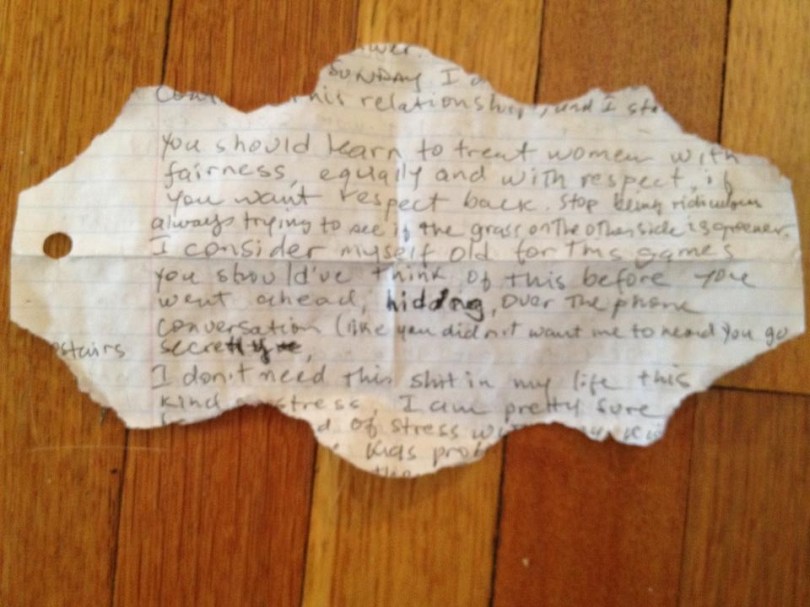 wer.
SUNDAY I
this relationship, and I sta
You should learn to treat women with
fairness, equally and with respect, if
you want respect back. Stop being ridiculous
always trying to see if the grass on the other side is greener.
I consider myself old for this games
you should've think of this before you
went ahead, hidding, over the phone
conversation (like you did n't want me to heard you go
stairs secretly
I don't need this shit in my life this
kind of stress, I am pretty sure
d of stress
kids prob